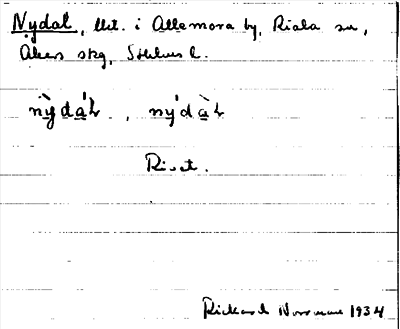 Nydal, lht. i Allemora by, Riala sn,
Åkers skg, Sthlms l.
nỳdáɫ, nýdàɫ
Rivet.
Rickard Norrman 1934